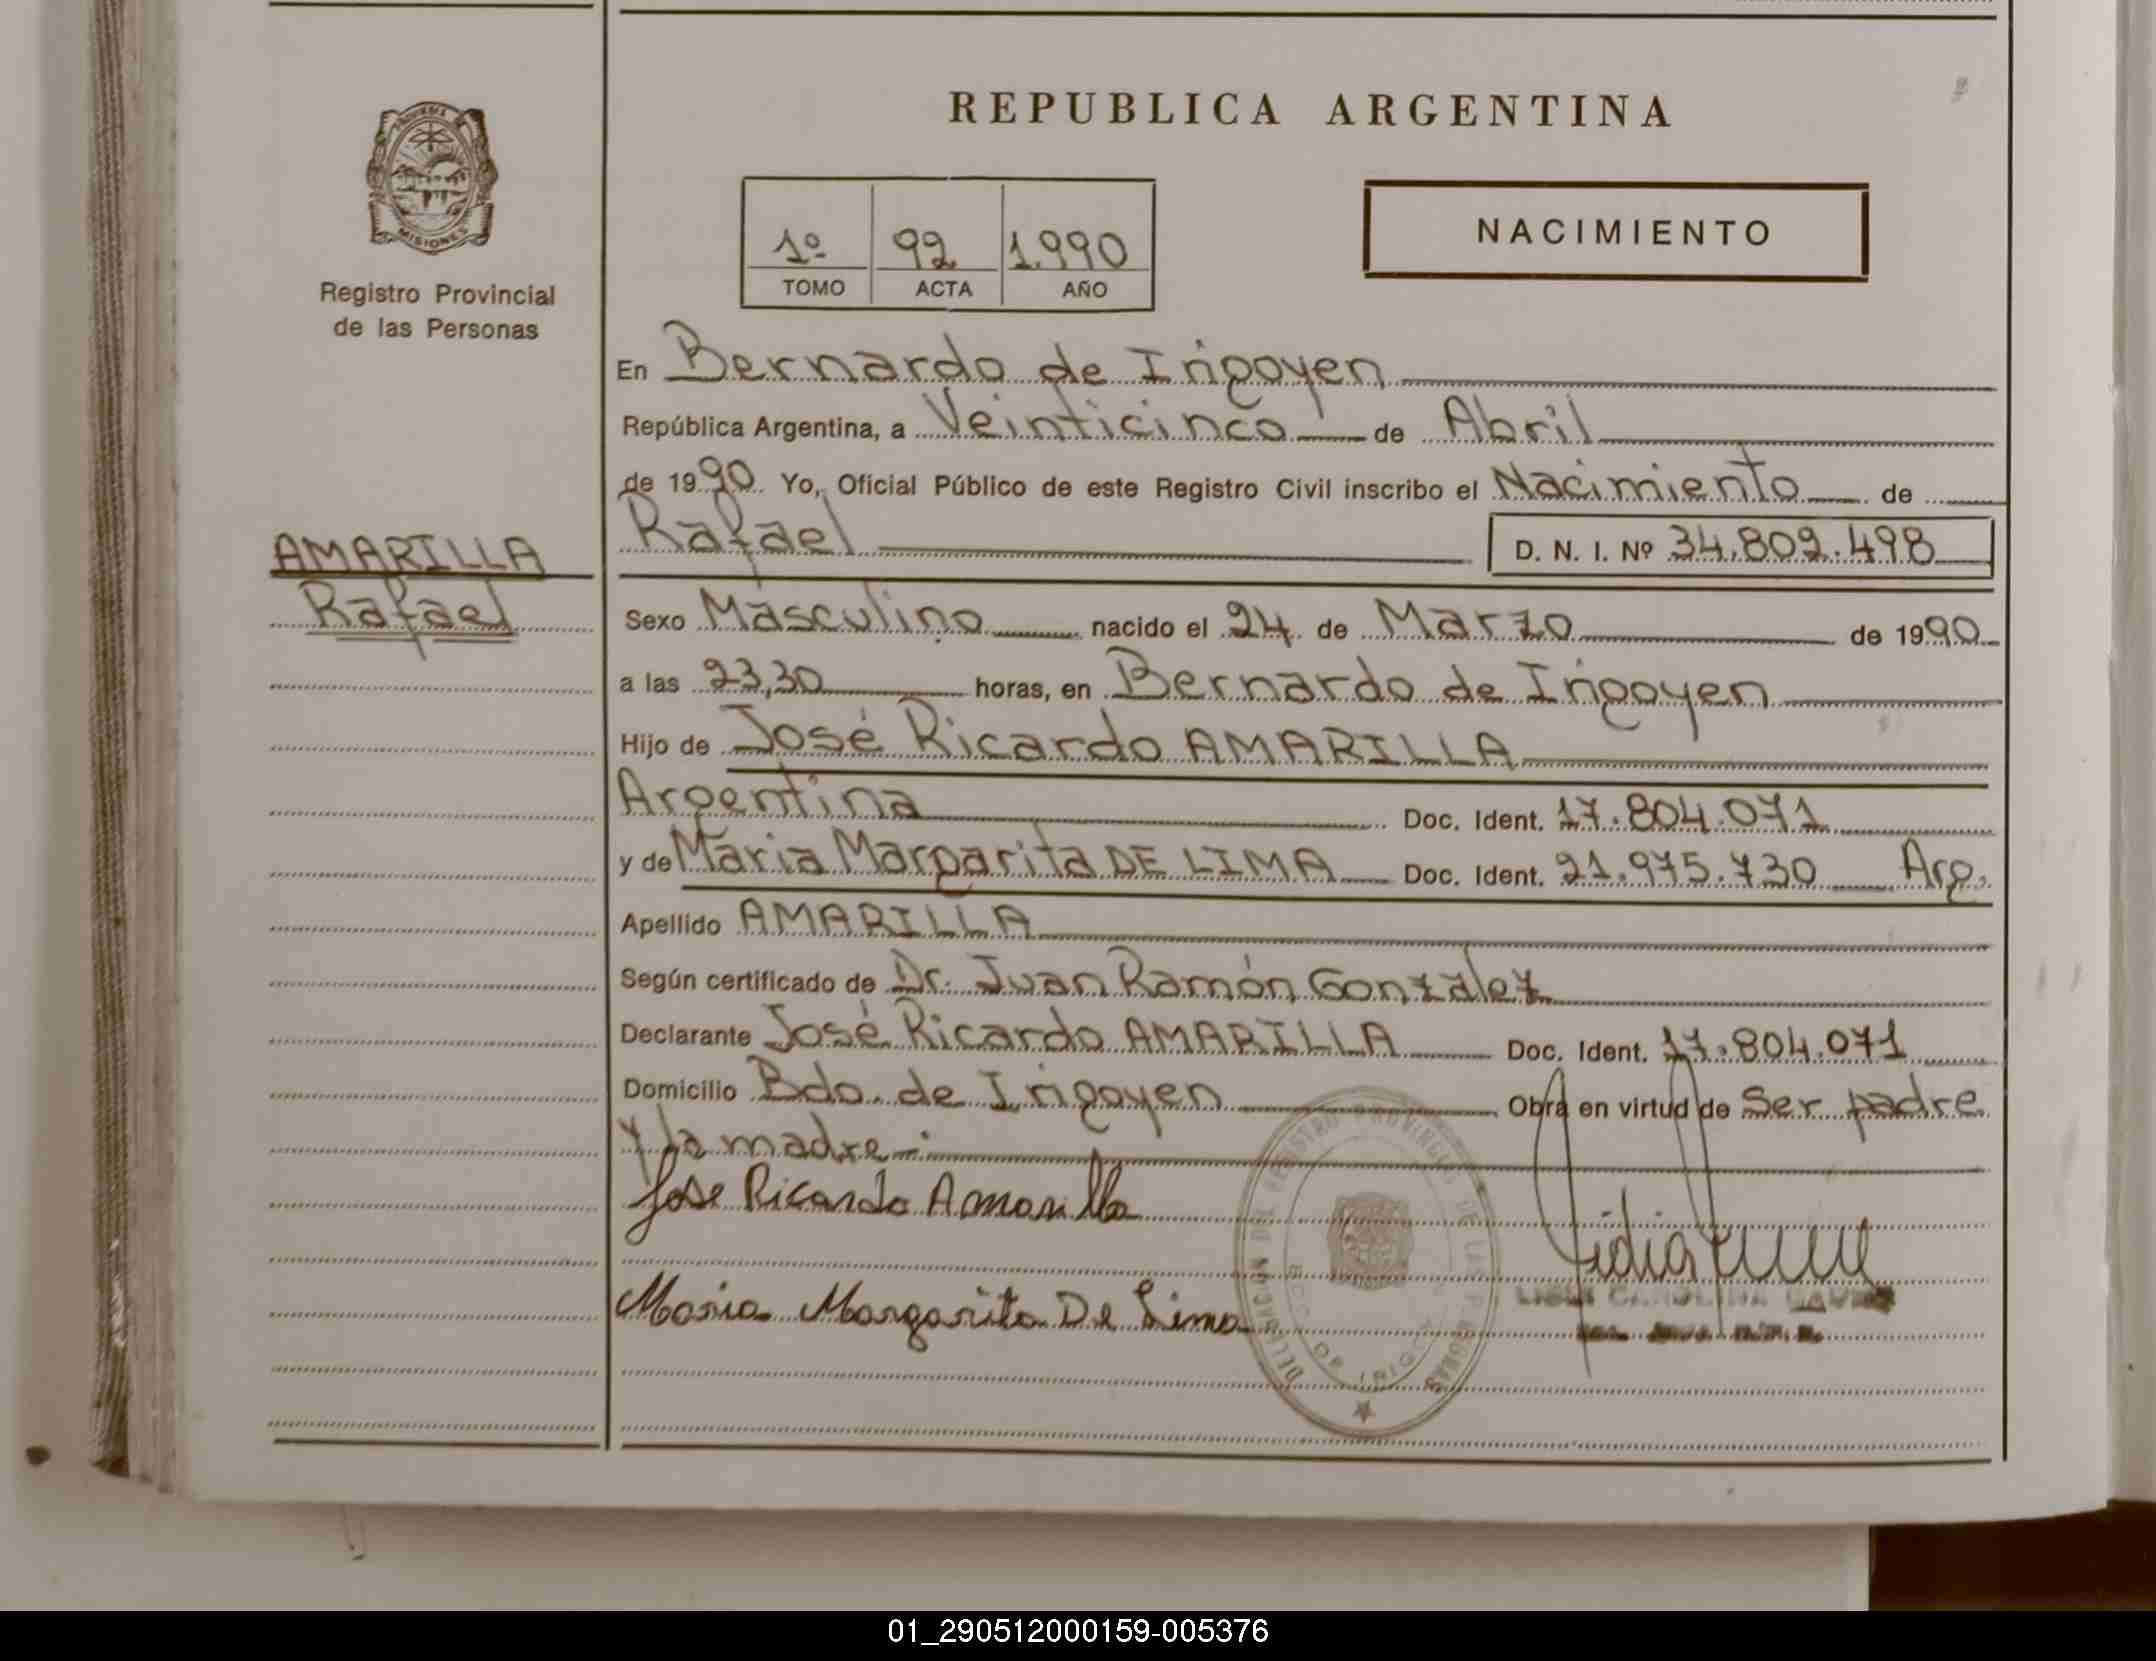 REPUBLICA ARGENTINA
MISIONES
Registro Provincial
de las Personas
1º 92 1.990
TOMO ACTA AÑO
NACIMIENTO
En Bernardo de Irigoyen
República Argentina, a Veinticinco de Abril
de 1990 Yo, Oficial Público de este Registro Civil inscribo el Nacimiento de
AMARILLA
Rafael
Rafael D. N. I. Nº 34.809.498
Sexo Masculino nacido el 24 de Marzo de 1990
a las 23,30 horas, en Bernardo de Irigoyen
Hijo de José Ricardo AMARILLA
Argentina Doc. Ident. 17.804.071
y de Maria Margarita DE LIMA Doc. Ident. 21.975.730 Arg.
Apellido AMARILLA
Según certificado de Dr. Juan Ramón Gonzalez
Declarante José Ricardo AMARILLA Doc. Ident. 17.804.071
Domicilio Bdo. de Irigoyen Obra en virtud de Ser padre
y la madre.-
Jose Ricardo Amarilla
Maria Margarita De Lima
DELEGACION DEL REGISTRO PROVINCIAL DE LAS PERSONAS
BDO. DE IRIGOYEN
CAROLINA
01_290512000159-005376